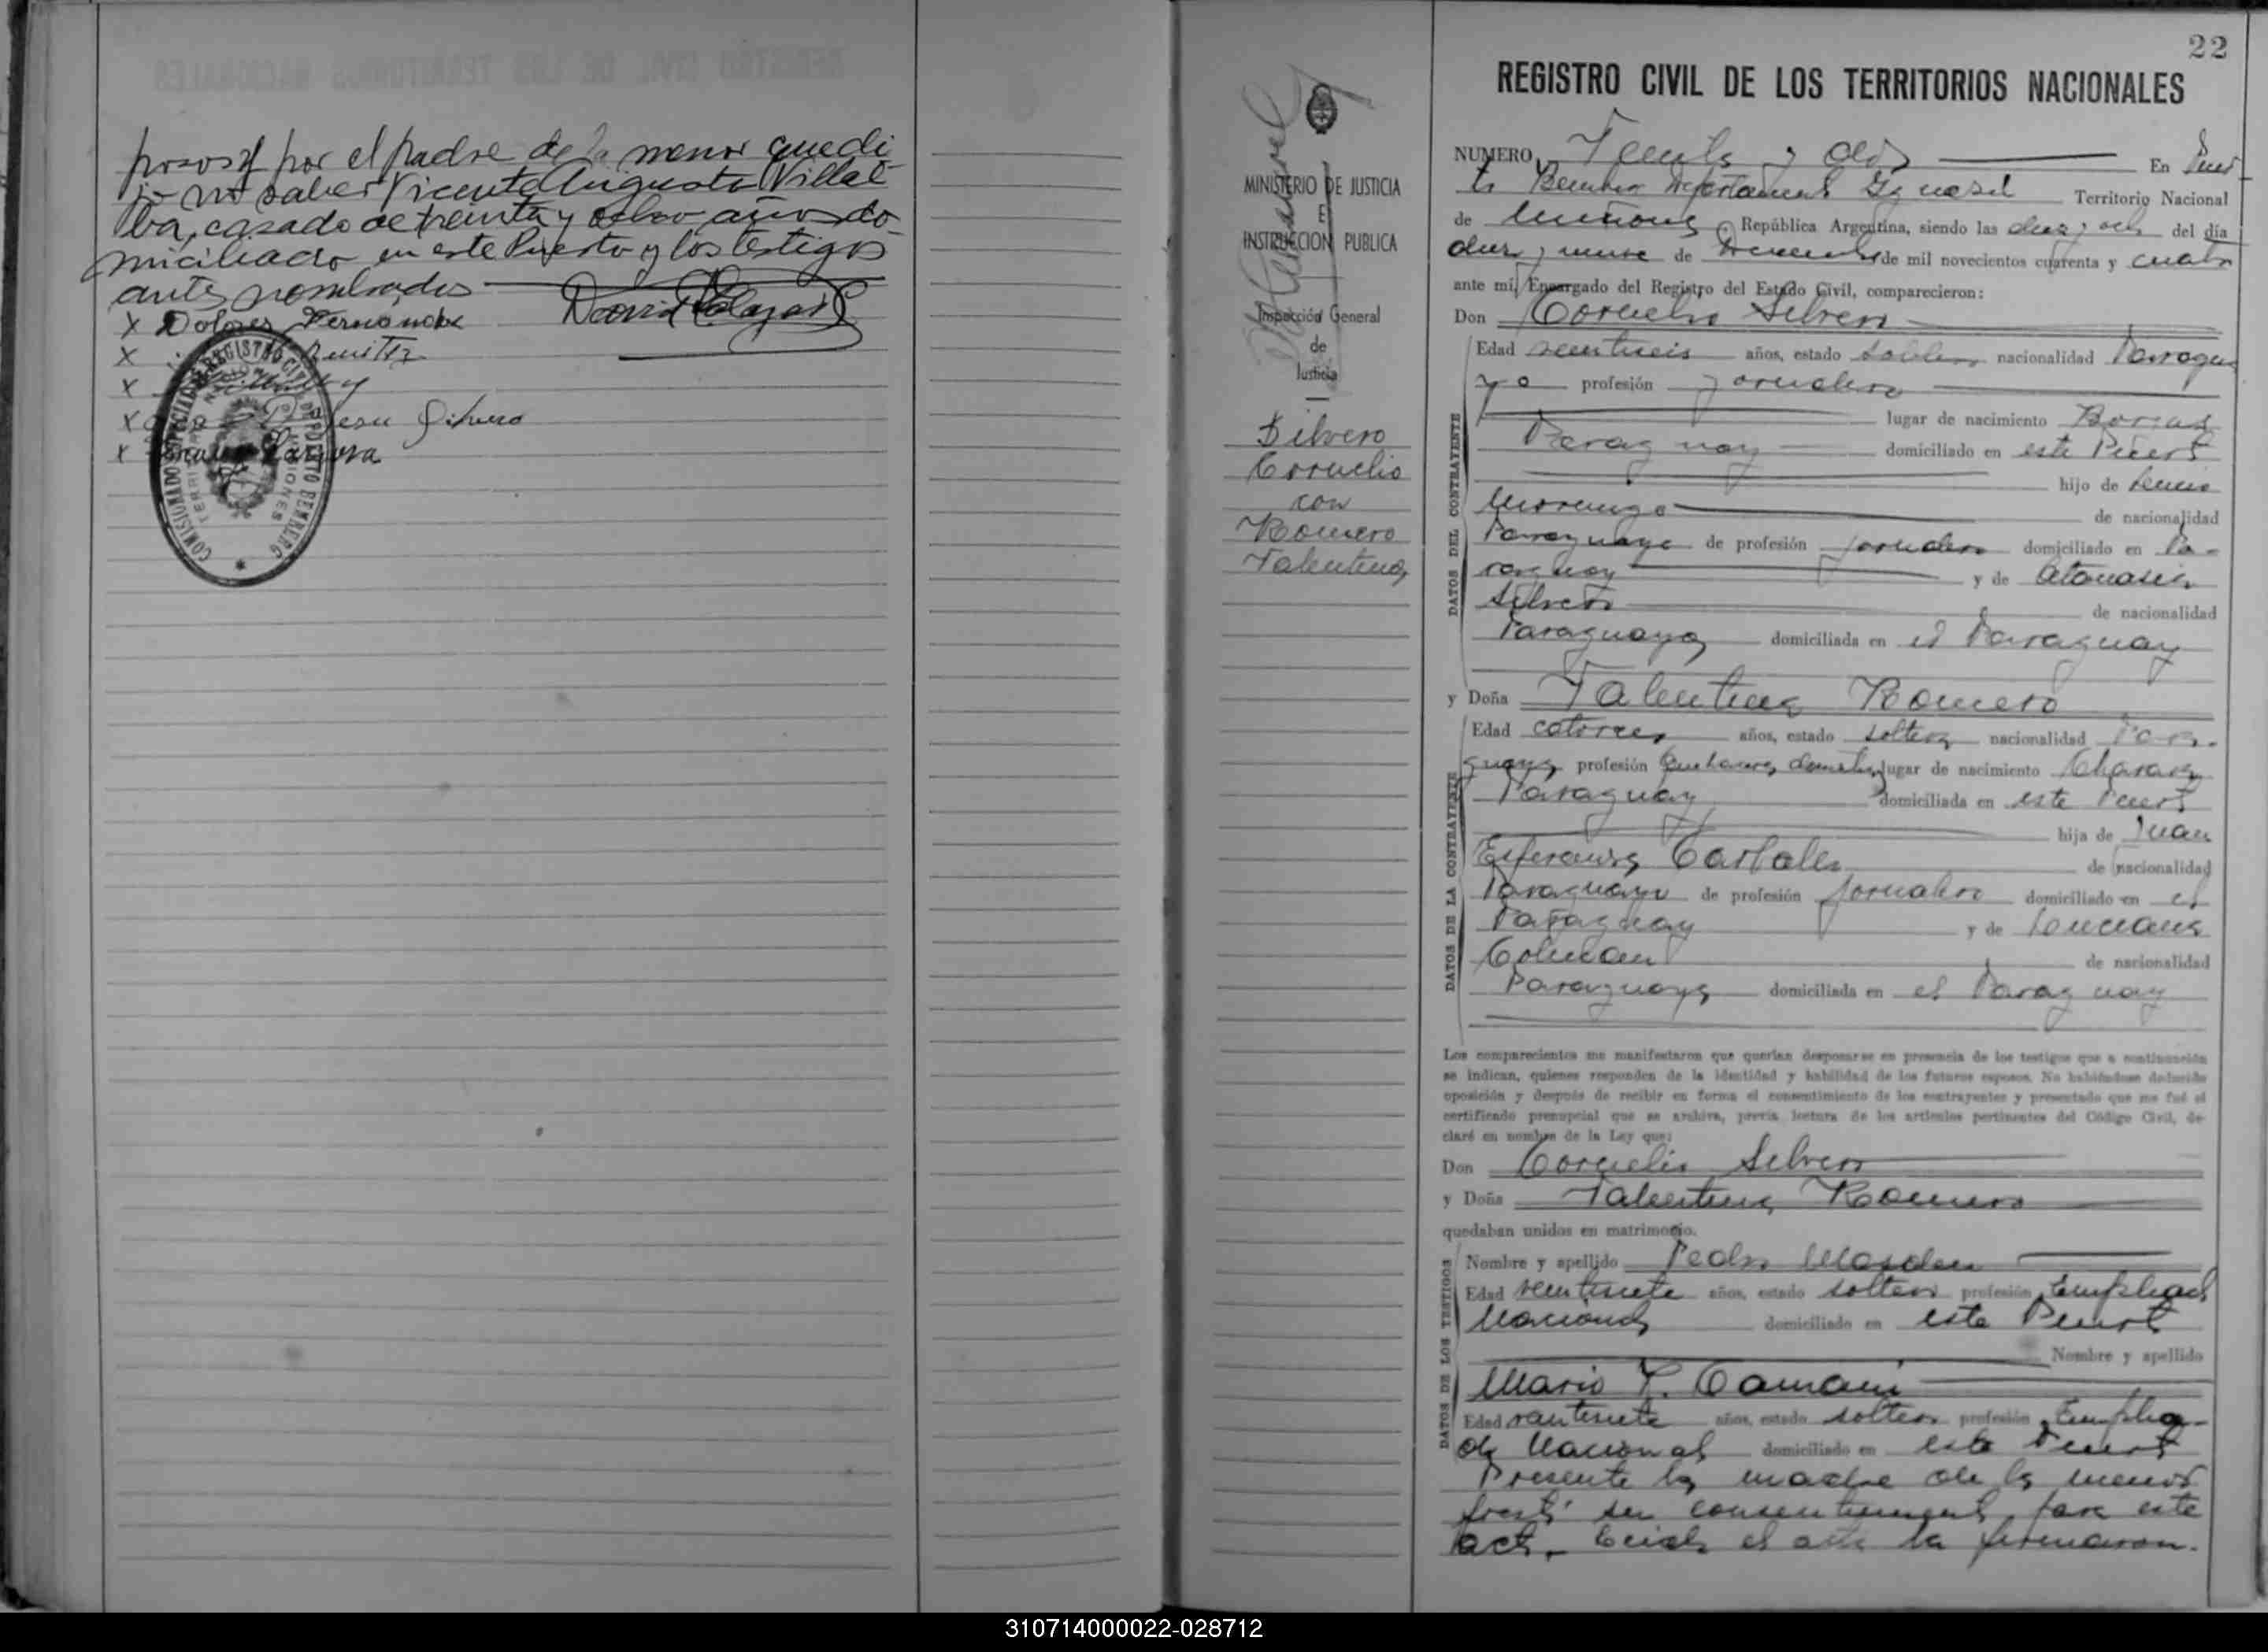 por el padre de la menor que di
jo no saber Vicente Augusto Villal
ba, casado de treinta y ocho años do
miciliado en este Puerto y los testigos
antes nombrados
X Dolores Fernandez
X
X
X Silvero
X
COMISIONADO ESPECIAL DE REGISTRO CIVIL DE PUERTO BEMBERG
MISIONES
MINISTERIO DE JUSTICIA
E
INSTRUCCION PUBLICA
Inspección General
de
Justicia
Silvero
Cornelio
con
Romero
Valentina
22
REGISTRO CIVIL DE LOS TERRITORIOS NACIONALES
NUMERO Veinte y dos En Puer
to Bemberg Departamento Iguazú Territorio Nacional
de Misiones República Argentina, siendo las diez y ocho del día
diez y nueve de de mil novecientos cuarenta y cuatro
ante mí, Encargado del Registro del Estado Civil, comparecieron:
Don Cornelio Silvero
Edad veintiseis años, estado soltero nacionalidad Paragua
yo profesión jornalero
lugar de nacimiento
Paraguay domiciliado en este Puerto
hijo de
de nacionalidad
Paraguayo de profesión jornalero domiciliado en Pa-
raguay y de Atanasia
Silvero de nacionalidad
Paraguaya domiciliada en el Paraguay
y Doña Valentina Romero
Edad catorce años, estado soltera nacionalidad Para-
guaya profesión Quehaceres domésticos lugar de nacimiento
Paraguay domiciliada en este Puerto
hija de Juan
Esperanza de nacionalidad
Paraguayo de profesión jornalero domiciliado en el
Paraguay y de Luciana
Colman de nacionalidad
Paraguaya domiciliada en el Paraguay
Los comparecientes me manifestaron que querían desposarse en presencia de los testigos que a continuación
se indican, quienes responden de la identidad y habilidad de los futuros esposos. No habiéndose deducido
oposición y después de recibir en forma el consentimiento de los contrayentes y presentado que me fué el
certificado prenupcial que se archiva, previa lectura de los artículos pertinentes del Código Civil, de-
claré en nombre de la Ley que:
Don Cornelio Silvero
y Doña Valentina Romero
quedaban unidos en matrimonio.
Nombre y apellido Pedro
Edad veintisiete años, estado soltero profesión Empleado
Nacional domiciliado en este Puerto
Nombre y apellido
Mario
Edad veintisiete años, estado soltero profesión Emplea-
do Nacional domiciliado en este Puerto
Presente la madre de la menor
prestó su consentimiento para este
acto.- Leida el acta la firmaron.
DATOS DEL CONTRAYENTE
DATOS DE LA CONTRAYENTE
DATOS DE LOS TESTIGOS
310714000022-028712